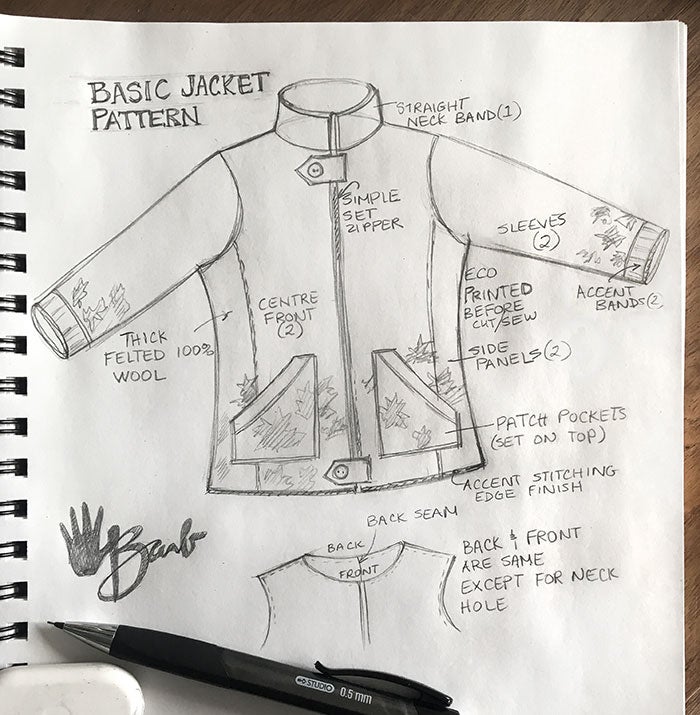 BASIC JACKET
PATTERN
STRAIGHT
NECK BAND (1)
SIMPLE
SET
ZIPPER
SLEEVES
(2)
ACCENT
BANDS (2)
ECO
PRINTED
BEFORE
CUT/SEW
CENTRE
FRONT
(2)
THICK
FELTED 100%
WOOL
SIDE
PANELS (2)
PATCH POCKETS
(SET ON TOP)
ACCENT STITCHING
EDGE FINISH
BACK SEAM
BACK
FRONT
BACK & FRONT
ARE SAME
EXCEPT FOR NECK
HOLE
Barb
STUDIO 0.5 mm